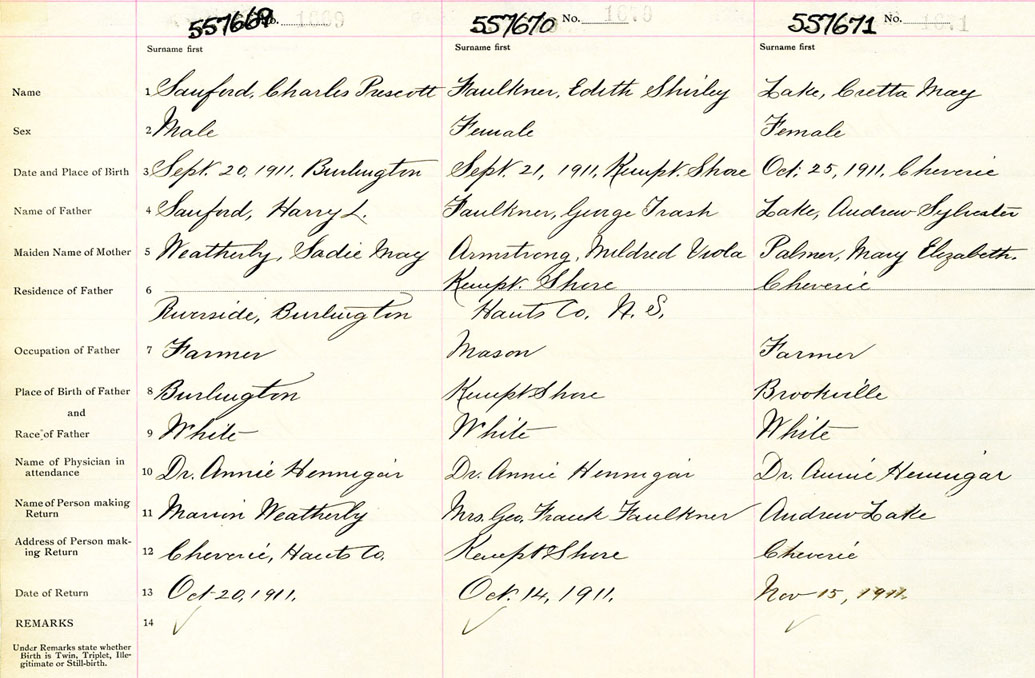 557669 No. 1669 557670 No. 1670 557671 No. 1671
Surname first Surname first Surname first
Name 1 Sanford, Charles Prescott Faulkner, Edith Shirley Lake, Cretta May
Sex 2 Male Female Female
Date and Place of Birth 3 Sept. 20, 1911, Burlington Sept. 21, 1911, Kempt Shore Oct. 25, 1911, Cheverie
Name of Father 4 Sanford, Harry L. Faulkner, George Frash Lake, Andrew Sylvester
Maiden Name of Mother 5 Weatherly, Sadie May Armstrong, Mildred Viola Palmer, Mary Elizabeth.
Residence of Father 6 Kempt. Shore Cheverie
Riverside, Burlington Hants Co. N. S.
Occupation of Father 7 Farmer Mason Farmer
Place of Birth of Father 8 Burlington Kempt Shore Brookville
and
Race of Father 9 White White White
Name of Physician in
attendance 10 Dr. Annie Hennigar Dr. Annie Hennigar Dr. Annie Hennigar
Name of Person making
Return 11 Marion Weatherly Mrs. Geo. Frank Faulkner Andrew Lake
Address of Person mak-
ing Return 12 Cheverie, Hants Co. Kempt Shore Cheverie
Date of Return 13 Oct-20, 1911. Oct. 14, 1911. Nov 15, 1911.
REMARKS 14
Under Remarks state whether
Birth is Twin, Triplet, Ille-
gitimate or Still-birth.